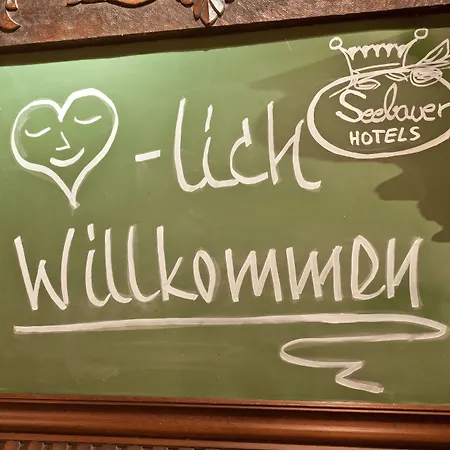 -lich
Seebauer
HOTELS
Willkommen